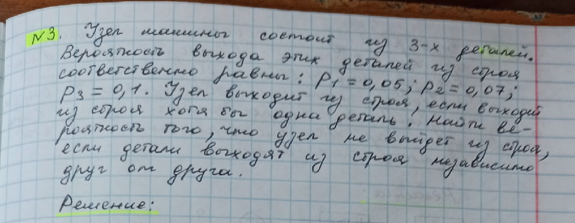 №3. Узел машины состоит из 3-х деталей.
Вероятность выхода этих деталей из строя
соответственно равны: P1 = 0,05; P2 = 0,07;
P3 = 0,1. Узел выходит из строя, если выходит
из строя хотя бы одна деталь. Найти ве-
роятность того, что узел не выйдет из строя,
если детали выходят из строя независимо
друг от друга.
Решение: